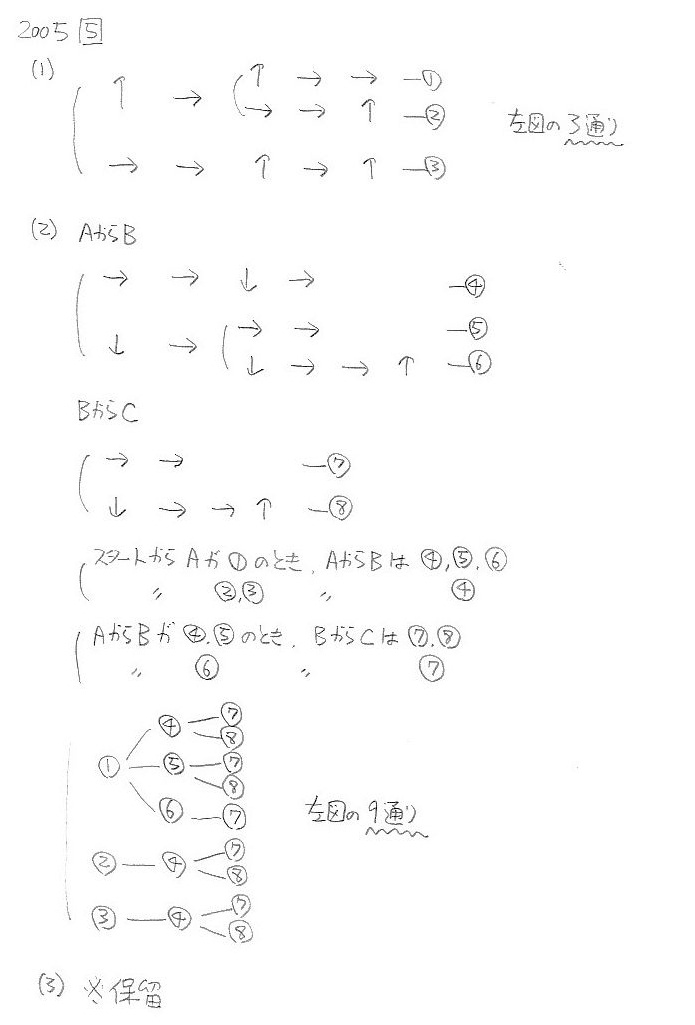 2005 5
(1)
↑ → ↑ → → ―①
→ → ↑ ―②
→ → ↑ → ↑ ―③
左図の3通り
(2) AからB
→ → ↓ → ―④
↓ → → → ―⑤
↓ → → ↑ ―⑥
BからC
→ → ―⑦
↓ → → ↑ ―⑧
スタートからAが①のとき、AからBは④,⑤,⑥
〃 ②,③ 〃 ④
AからBが④,⑤のとき、BからCは⑦,⑧
〃 ⑥ 〃 ⑦
① ④ ⑦
⑧
⑤ ⑦
⑧
⑥ ⑦
② ④ ⑦
⑧
③ ④ ⑦
⑧
左図の9通り
(3) ※保留